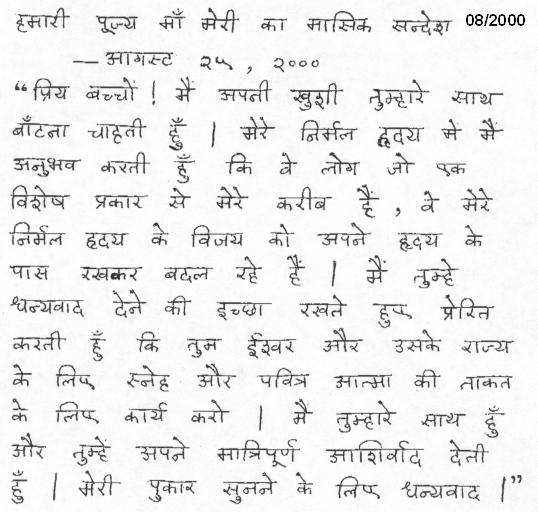 हमारी पूज्य माँ मेरी का मासिक सन्देश 08/2000
— आगस्ट २५, २०००
“प्रिय बच्चों! मैं अपनी खुशी तुम्हारे साथ
बाँटना चाहती हुँ | मेरे निर्मल हृदय में मैं
अनुभव करती हुँ कि वे लोग जो एक
विशेष प्रकार से मेरे करीब हैं, वे मेरे
निर्मल हृदय के विजय को अपने हृदय के
पास रखकर बदल रहे हैं | मैं तुम्हे
धन्यवाद देने की इच्छा रखते हुए प्रेरित
करती हुँ कि तुम ईश्वर और उसके राज्य
के लिए स्नेह और पवित्र आत्मा की ताकत
के लिए कार्य करो | मैं तुम्हारे साथ हुँ
और तुम्हें अपने मात्रिपूर्ण आशिर्वाद देती
हुँ | मेरी पुकार सुनने के लिए धन्यवाद |”